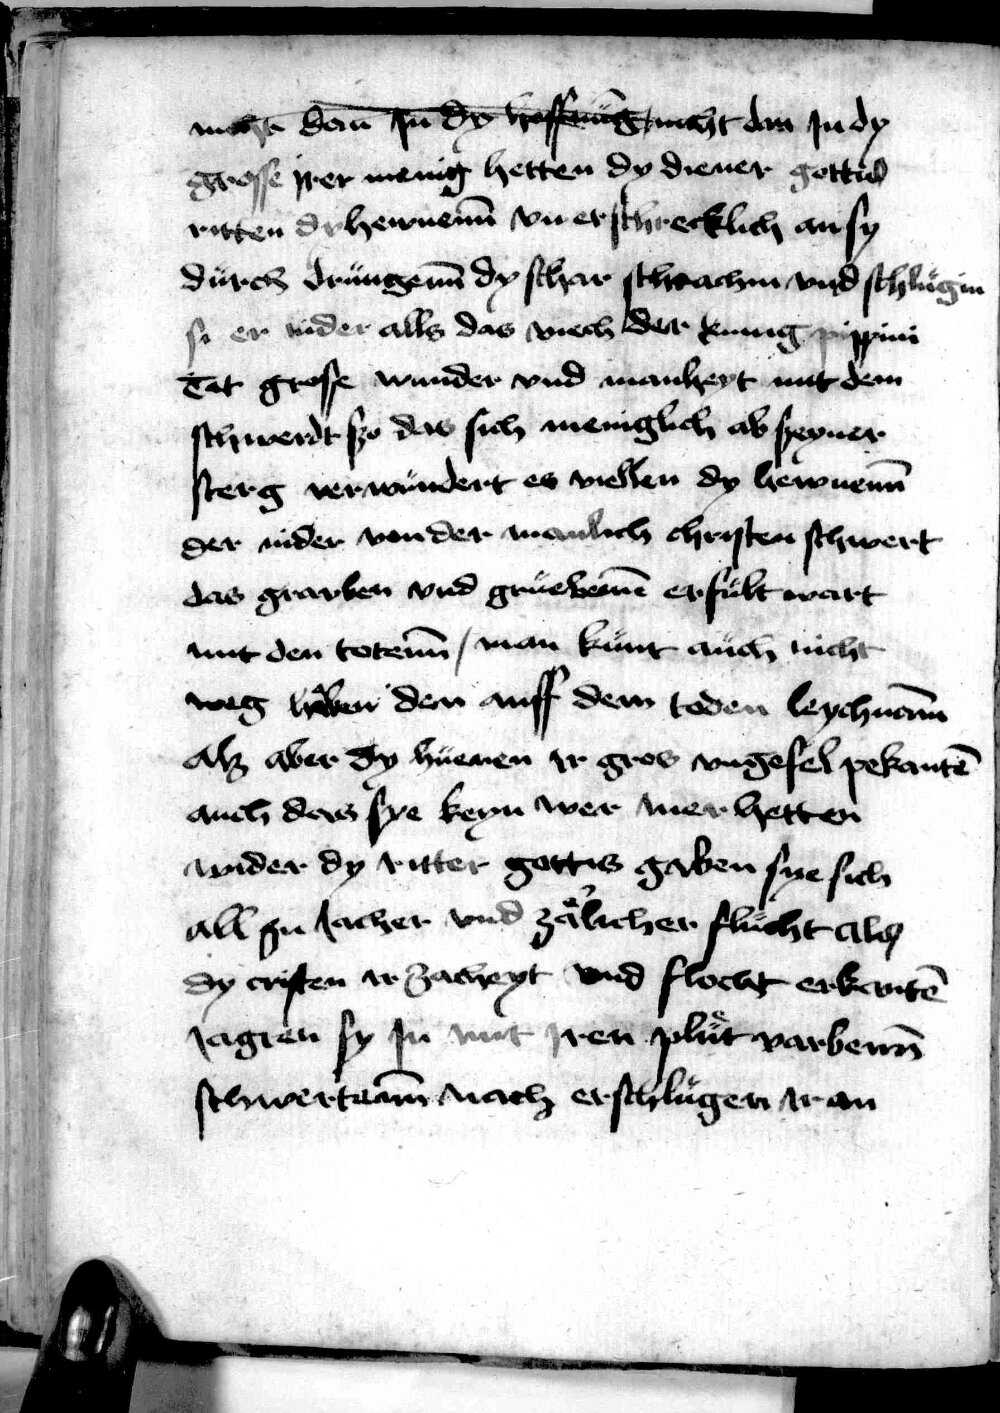 nicht dan̄ Jn dy hoffnu̅g nicht dan Jn dy
grosse jrer menig hetten dy diener gottis
ritten dy hewnenn̄ vn̄ erschrecklich an sy
dürch drüngenn̄ dy schar schwachin vnd schlügin
si er nider alls das viech der kunig pippini
Tet grosse wunder vnd manheyt mit dem
schwerdt szo das sich meniglich ab seyner
sterg verwundert es viellen dy hewnenn̄
der nider von der manlich christen schwert
das grarben vnd grüebenn̄ erfült wart
mit den totenn̄ / man kunt auch nicht
weg haben den auff dem toden leychnam̄
Alz aber dy hüenen ir gros vngefel pekantē
auch das sye keyn wer mer hetten
wider dy ritter gottis gaben sye sich
all zu Jacher vnd zälicher flücht als
dy cristen ir zacheyt vnd flocht erkantē
Jagten sy Jn mit jren plüt varbenn̄
schwertenn̄ nach erschlügen ir an